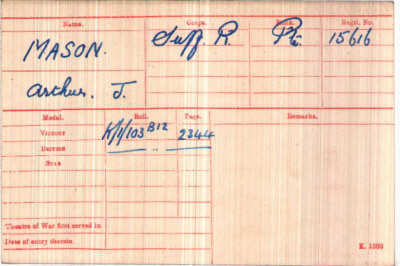 Name. Corps. Rank. Regtl. No.
MASON. Suff. R. Pte. 15616
Arthur. J.
Medal. Roll. Page. Remarks.
VICTORY K/1/103 B12 2344
BRITISH — „ —
STAR
Theatre of War first served in
Date of entry therein K. 1380